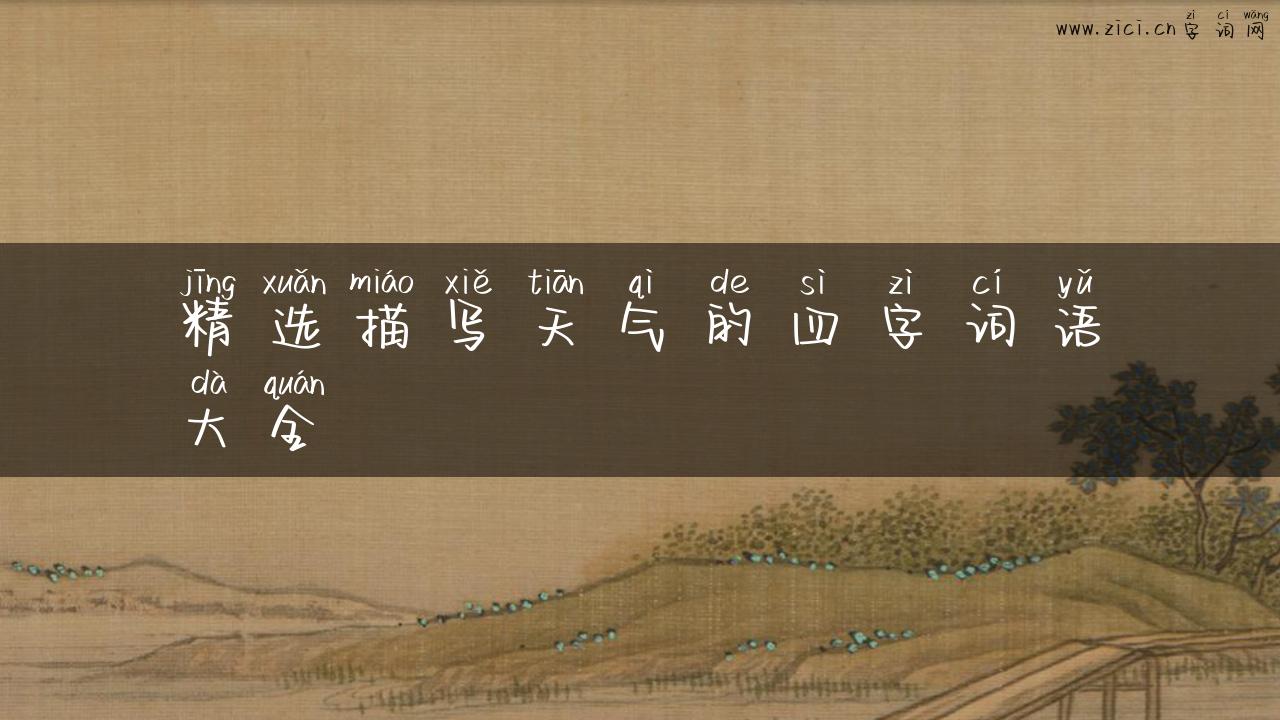 zì cí wǎng
www.zici.cn字词网
jīng xuǎn miáo xiě tiān qì de sì zì cí yǔ
精选描写天气的四字词语
dà quán
大全